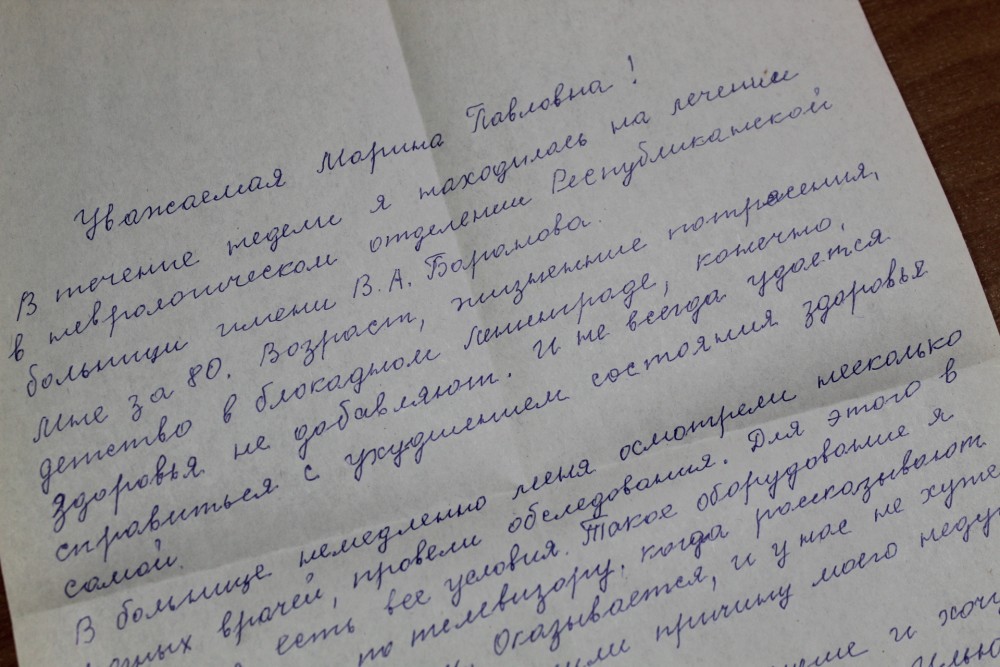 Уважаемая Марина Павловна!
В течение недели я находилась на лечении
в неврологическом отделении Республиканской
больници имени В.А. Баранова.
Мне за 80. Возраст, жизненные потрясения,
детство в блокадном Ленинграде, конечно,
здоровья не добавляют. И не всегда удается
справиться с ухудшением состояния здоровья
самой.
В больнице немедленно меня осмотрели несколько
врачей, провели обследования. Для этого в
есть все условия. Такое оборудование я
по телевизору, когда рассказывают
Оказывается, и у нас не хуже
причину моего
и хочу